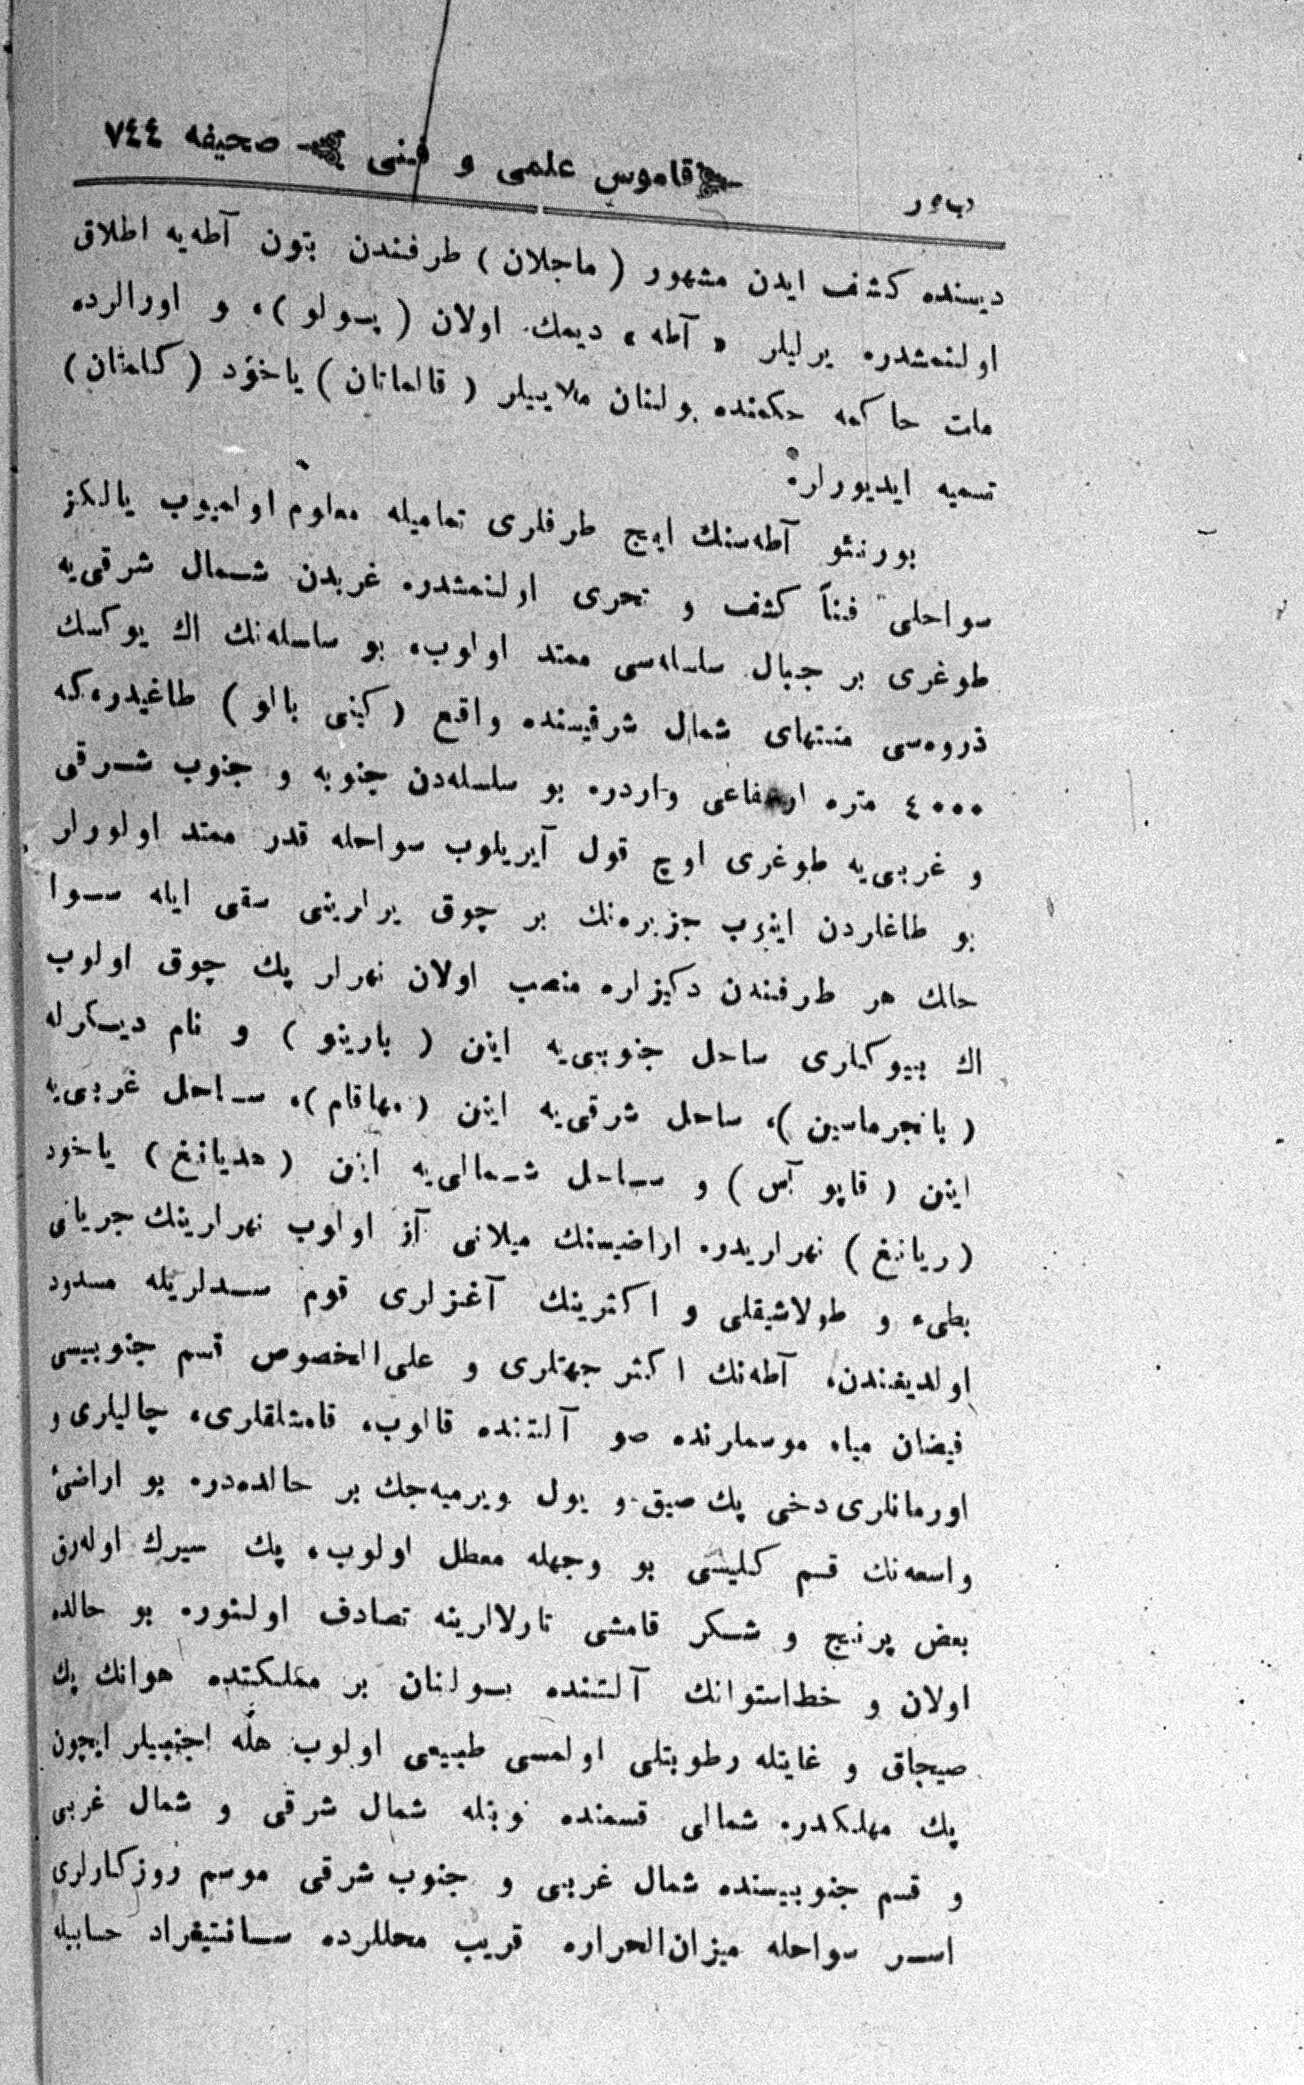 ب و ر قاموس علمی و فنی صحیفه ٧٤٤
دیسنده کشف ایدن مشهور ( ماجلان ) طرفندن بتون آطه‌یه اطلاق
اولنمشدر. یرلیلر « آطه » دیمك اولان ( پولو )، و اورالرده
مات حاکمه حکمنده بولنان مالاییلر ( قالماتان ) یاخود ( کلمنتان )
تسمیه ایدیورلر.
بورنئو آطه‌سنك ایچ طرفلری تمامیله معلوم اولمیوب یالکز
سواحلی فناً کشف و تحری اولنمشدر. غربدن شمال شرقی‌یه
طوغری بر جبال سلسله‌سی ممتد اولوب، بو سلسله‌نك اك یوکسك
ذروه‌سی منتهای شمال شرقیسنده واقع ( کینی بالو ) طاغیدر.که
٤٠٠٠ متره ارتفاعی واردر. بو سلسله‌دن جنوبه و جنوب شرقی
و غربی‌یه طوغری اوچ قول آیریلوب سواحله قدر ممتد اولورلر
بو طاغلردن اینوب جزیره‌نك بر چوق یرلرینی سقی ایله سوا
حلك هر طرفندن دکیزلره منصب اولان نهرلر پك چوق اولوب
اك بیوکلری ساحل جنوبی‌یه اینن ( باریتو ) و نام دیکرله
( بانجرماسین )، ساحل شرقی‌یه اینن ( مهاقام )، ساحل غربی‌یه
اینن ( قاپو آس ) و ساحل شمالی‌یه اینن ( هدیانغ ) یاخود
( ریانغ ) نهرلریدر. اراضیسنك میلانی آز اولوب نهرلرینك جریانی
بطیء و طولاشیقلی و اکثرینك آغزلری قوم سدلریله مسدود
اولدیغندن، آطه‌نك اکثر جهتلری و علی‌الخصوص قسم جنوبیسی
فیضان میاه موسملرنده صو آلتنده قالوب، قامشلقلری، چالیلری و
اورمانلری دخی پك صیق و یول ویرمیه‌جك بر حالده‌در. بو اراضئ
واسعه‌نك قسم کلیسی بو وجهله معطل اولوب، پك سیرك اوله‌رق
بعض پرنج و شکر قامشی تارلالرینه تصادف اولنور. بو حالده
اولان و خط‌استوانك آلتنده بولنان بر مملکتده هوانك پك
صیجاق و غایتله رطوبتلی اولمسی طبیعی اولوب هله اجنبیلر ایچون
پك مهلکدر. شمالی قسمنده نوبتله شمال شرقی و شمال غربی
و قسم جنوبیسنده شمال غربی و جنوب شرقی موسم روزکارلری
اسر سواحله میزان‌الحراره قریب محللرده سانتیغراد حسابیله